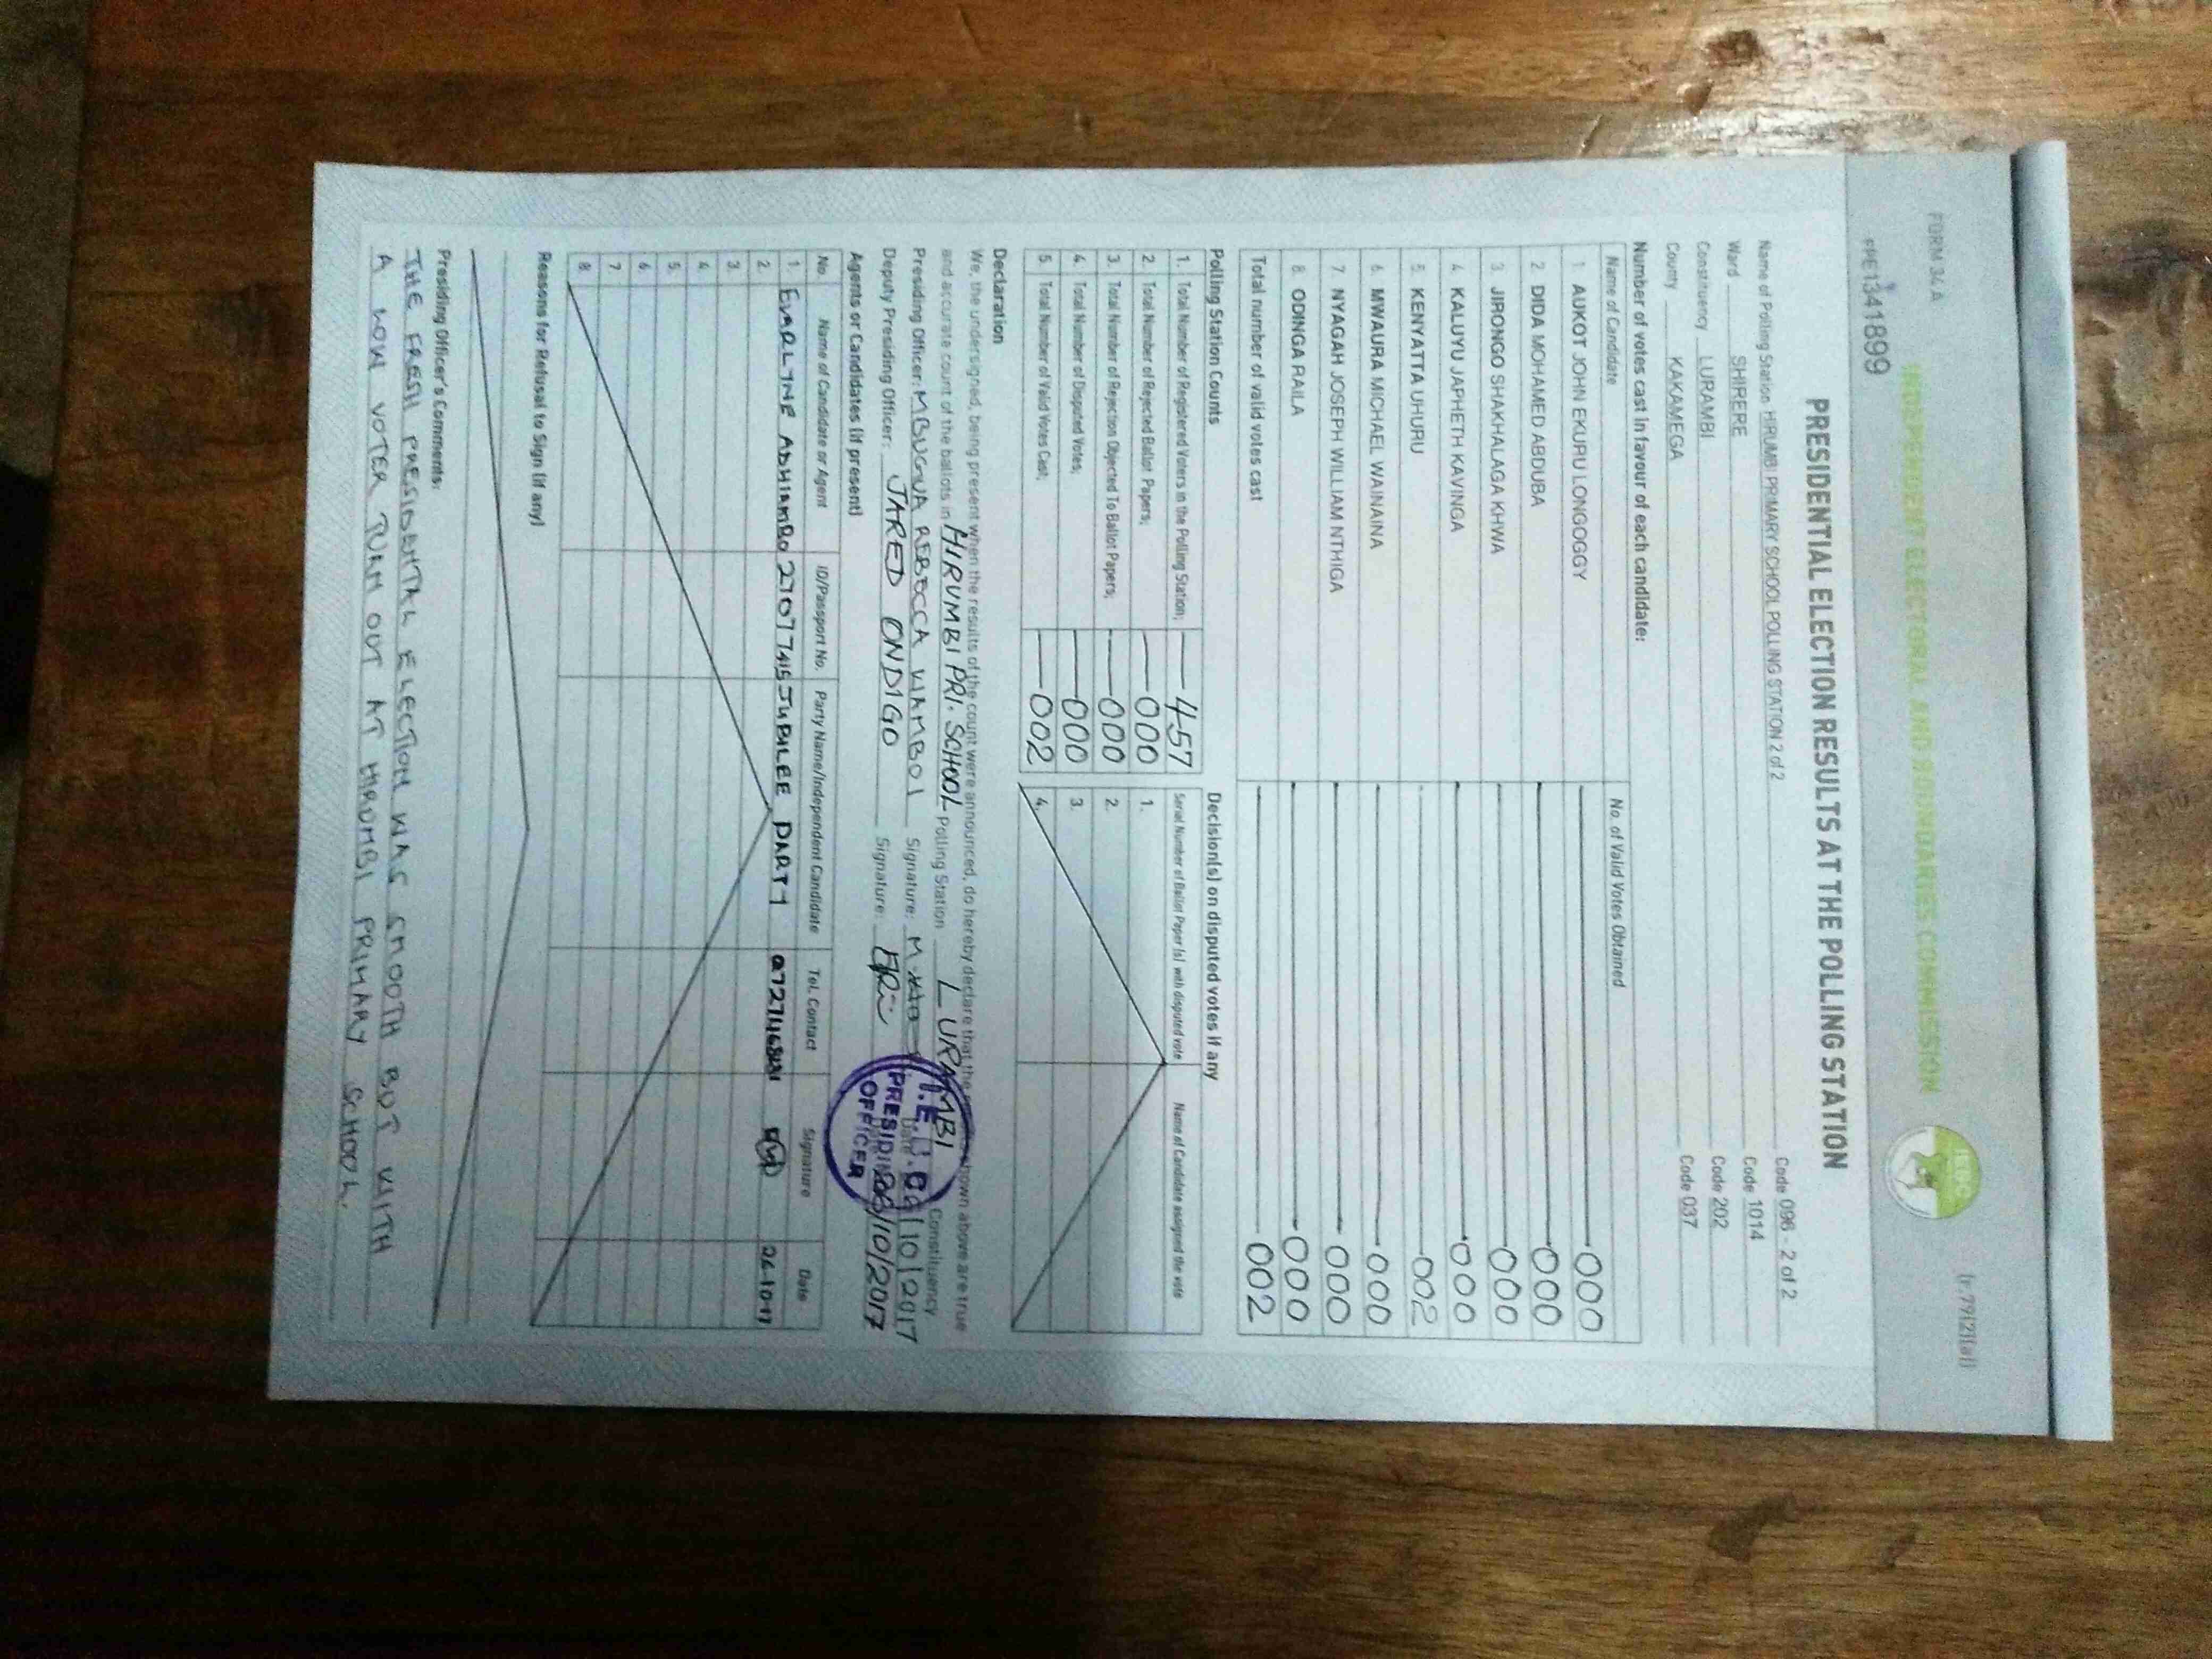 FORM 34A
(r.79(2)(a))
INDEPENDENT ELECTORAL AND BOUNDARIES COMMISSION
IEBC
PPE1341899
PRESIDENTIAL ELECTION RESULTS AT THE POLLING STATION
Name of Polling Station HIRUMBI PRIMARY SCHOOL POLLING STATION 2 of 2 Code 096 - 2 of 2
Ward SHIRERE Code 1014
Constituency LURAMBI Code 202
County KAKAMEGA Code 037
Number of votes cast in favour of each candidate:
Name of Candidate No. of Valid Votes Obtained
1. AUKOT JOHN EKURU LONGOGGY 000
2. DIDA MOHAMED ABDUBA 000
3. JIRONGO SHAKHALAGA KHWA 000
4. KALUYU JAPHETH KAVINGA 000
5. KENYATTA UHURU 002
6. MWAURA MICHAEL WAINAINA 000
7. NYAGAH JOSEPH WILLIAM NTHIGA 000
8. ODINGA RAILA 000
Total number of valid votes cast 002
Polling Station Counts
1. Total Number of Registered Voters in the Polling Station; 457
2. Total Number of Rejected Ballot Papers; 000
3. Total Number of Rejection Objected To Ballot Papers; 000
4. Total Number of Disputed Votes; 000
5. Total Number of Valid Votes Cast; 002
Decision(s) on disputed votes if any
Serial Number of Ballot Paper (s) with disputed vote Name of Candidate assigned the vote
1.
2.
3.
4.
Declaration
We, the undersigned, being present when the results of the count were announced, do hereby declare that the shown above are true
and accurate count of the ballots in HIRUMBI PRI. SCHOOL Polling Station LURAMBI Constituency
Presiding Officer: MBUGUA REBECCA WAMBOI Signature: Date 10/2017
Deputy Presiding Officer: JARED ONDIGO Signature: /10/2017
I.E.B.C
PRESIDING
OFFICER
Agents or Candidates (if present)
No. Name of Candidate or Agent ID/Passport No. Party Name/Independent Candidate Tel. Contact Signature Date
1. EVARLINE ADHIAMBO JUBILEE PARTY 26-10-17
2.
3.
4.
5.
6.
7.
8.
Reasons for Refusal to Sign (if any)
Presiding Officer's Comments:
THE FRESH PRESIDENTAL ELECTION WAS SMOOTH BUT WITH
A LOW VOTER TURN OUT AT HIRUMBI PRIMARY SCHOOL.